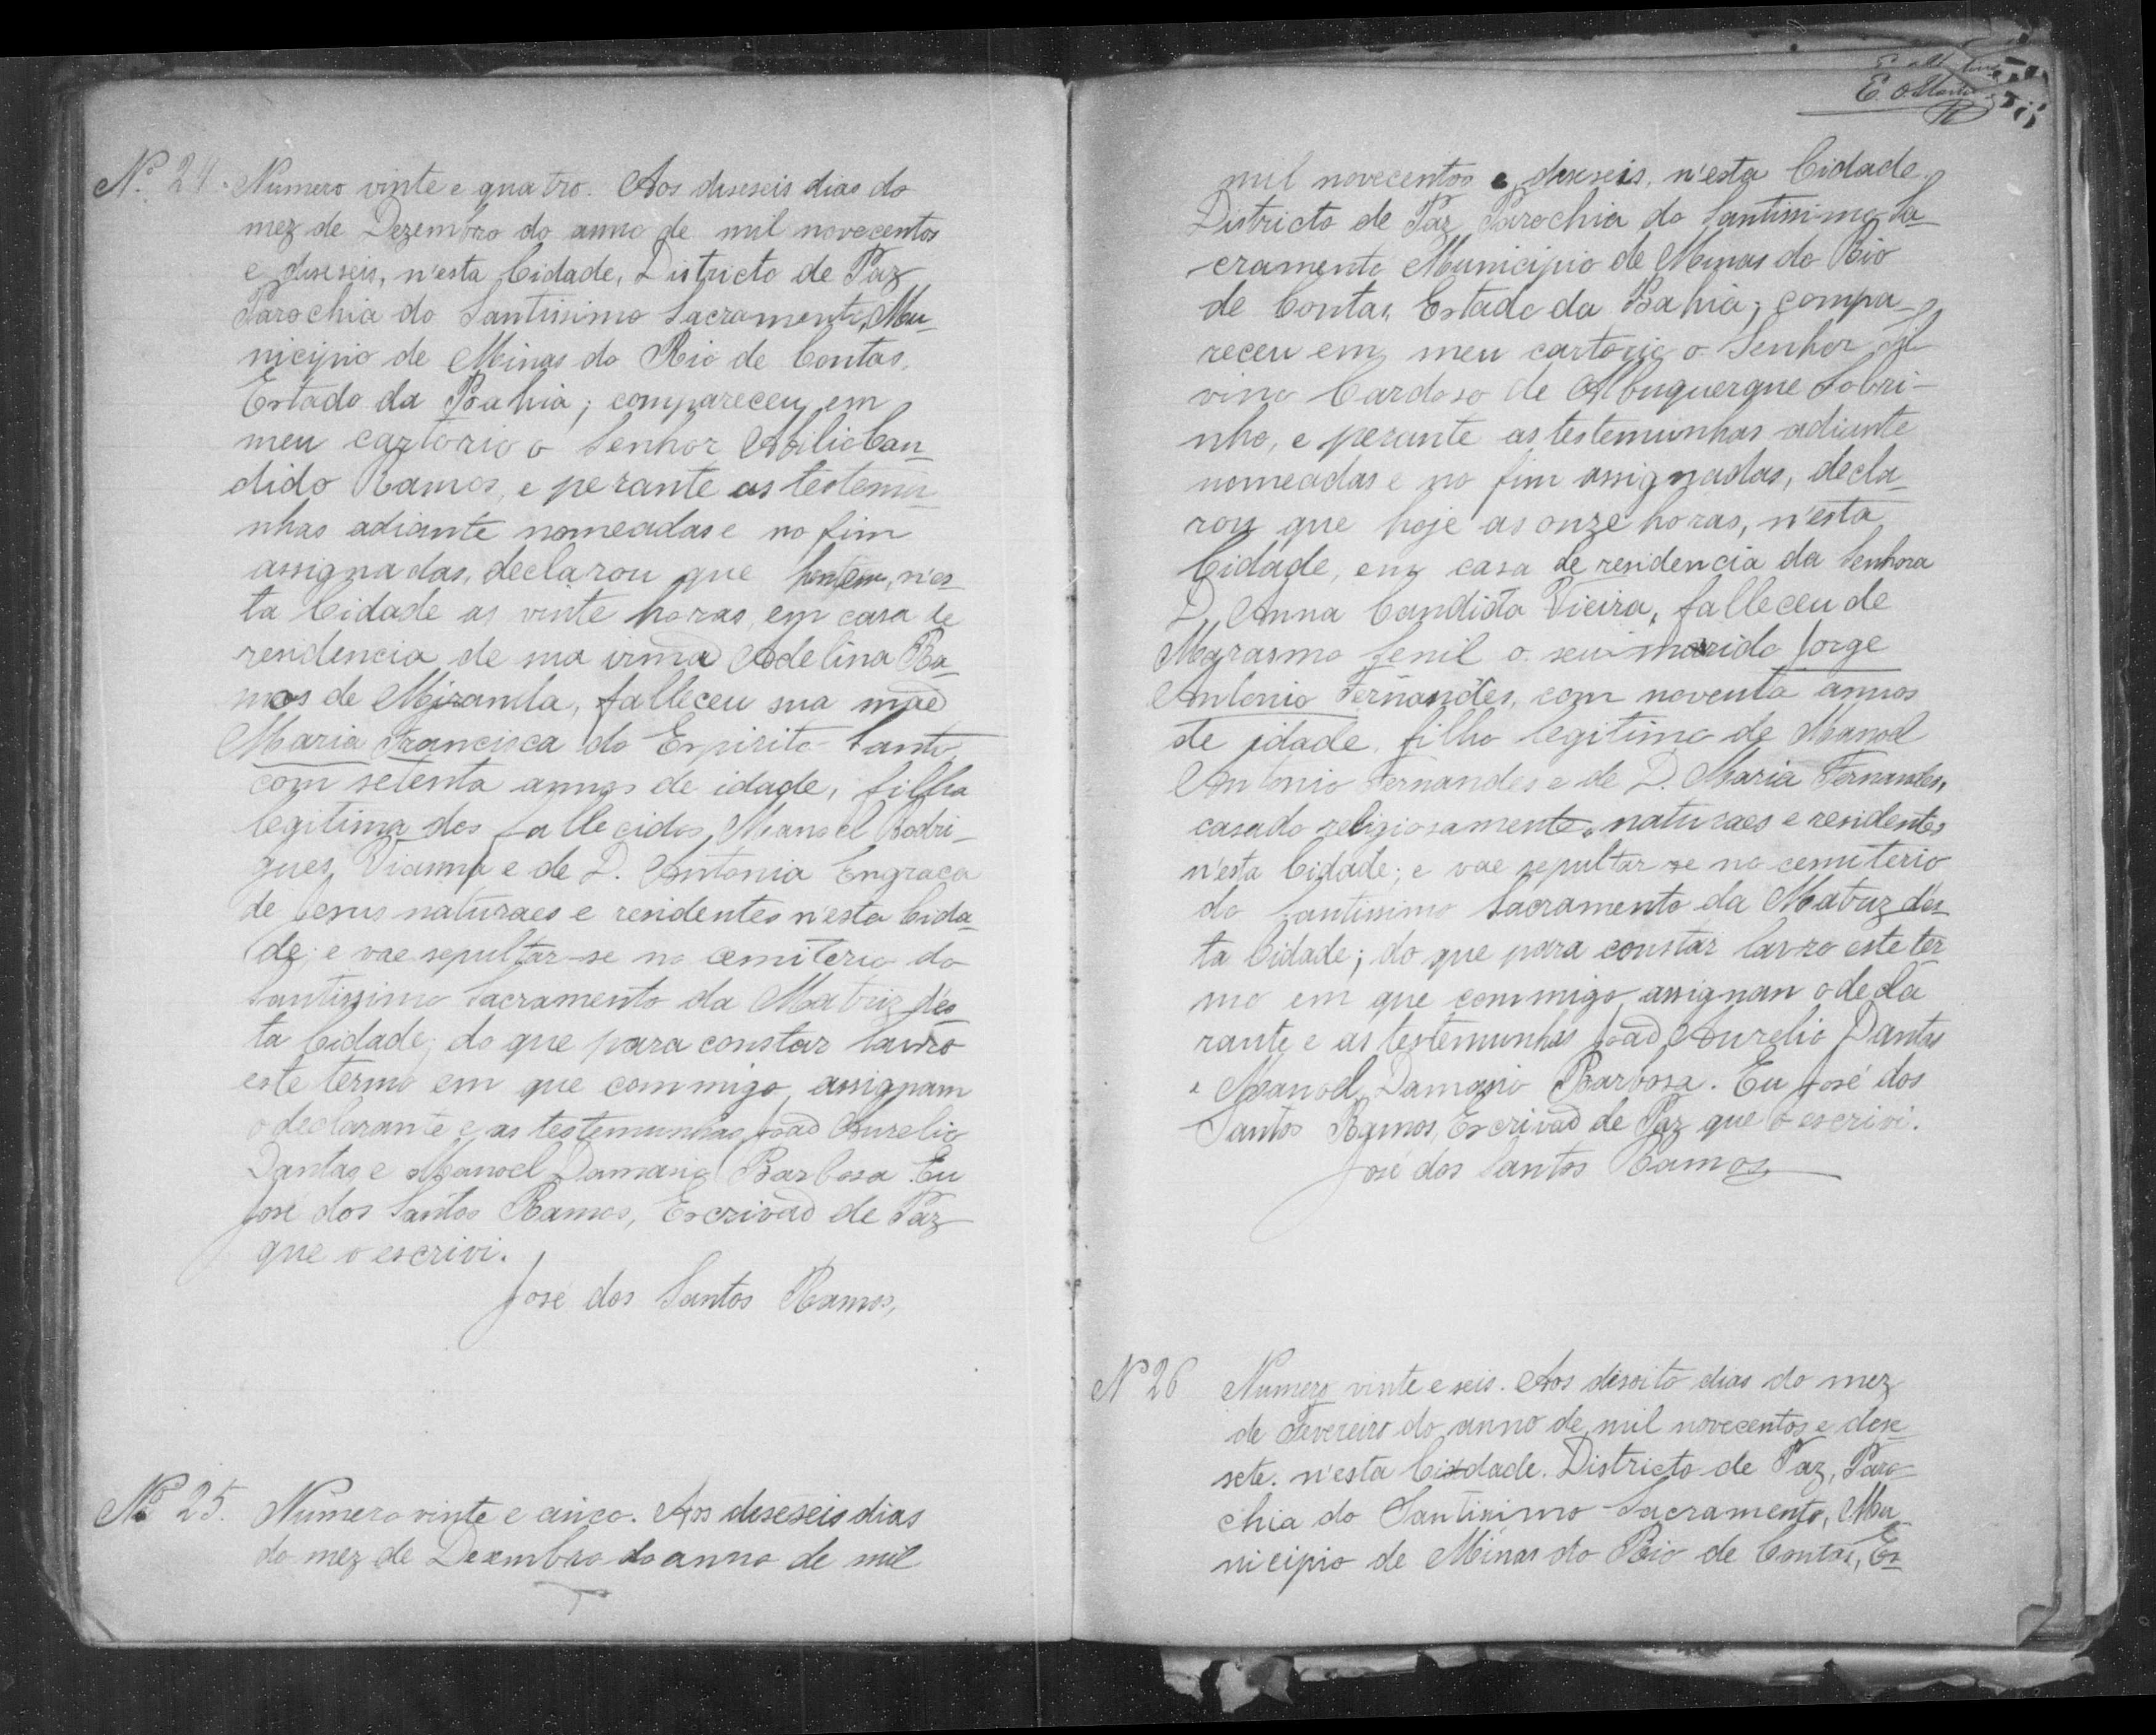 Nº 24. Numero vinte e quatro. Aos diseseis dias do
mez de Dezembro do anno de mil novecentos
e diseseis, n'esta Cidade, Districto de Paz
Parochia do Santissimo Sacramento, Mu-
nicipio de Minas do Rio de Contas,
Estado da Bahia; compareceu em
meu cartorio o Senhor Abilio Can-
dido Ramos, e perante as testemu-
nhas adiante nomeadas e no fim
assignadas, declarou que hontem, n'es-
ta Cidade as vinte horas, em casa de
residencia de sua irmã Adelina Ra-
mos de Miranda, falleceu sua mãe
Maria Francisca do Espirito Santo,
com setenta annos de idade, filha
legitima dos fallecidos, Manoel Rodri-
gues Vianna e de D. Antonia Engraca
de Jesus naturaes e residentes n'esta Cida-
de; e vae sepultar-se no cemiterio do
Santissimo Sacramento da Matriz des-
ta Cidade; do que para constar lavro
este termo em que commigo assignam
o declarante e as testemunhas João Aurelio
Dantas e Manoel Damasio Barbosa. Eu
José dos Santos Ramos, Escrivão de Paz
que o escrivi.
José dos Santos Ramos,
Nº 25. Numero vinte e cinco. Aos diseseis dias
do mez de Dezembro do anno de mil
E. Martins
mil novecentos e diseseis, n'esta Cidade,
Districto de Paz Parochia do Santissimo Sa-
cramento Municipio de Minas do Rio
de Contas, Estado da Bahia; compa-
receu em meu cartorio o Senhor Jil-
vino Cardoso de Albuquerque Sobri-
nho, e perante as testemunhas adiante
nomeadas e no fim assignadas, decla-
rou que hoje as onze horas, n'esta
Cidade, em casa de residencia da Senhora
D. Anna Candida Vieira, falleceu de
Marasmo Senil o seu marido Jorge
Antonio Fernandes, com noventa annos
de idade, filho legitimo de Manoel
Antonio Fernandes e de D. Maria Fernandes,
casado religiosamente, naturaes e residentes
n'esta Cidade; e vae sepultar-se no cemiterio
do Santissimo Sacramento da Matriz d'es-
ta Cidade; do que para constar lavro este ter-
mo em que commigo assignan o decla-
rante e as testemunhas João Aurelio Dantas
e Manoel Damasio Barbosa. Eu José dos
Santos Ramos, Escrivão de Paz que o escrivi.
José dos Santos Ramos,
Nº 26 Numero vinte e seis. Aos disoito dias do mez
de Fevereiro do anno de mil novecentos e dese-
sete. n'esta Cidade. Districto de Paz, Paro-
chia do Santissimo Sacramento, Mu-
nicipio de Minas do Rio de Contas, Es-